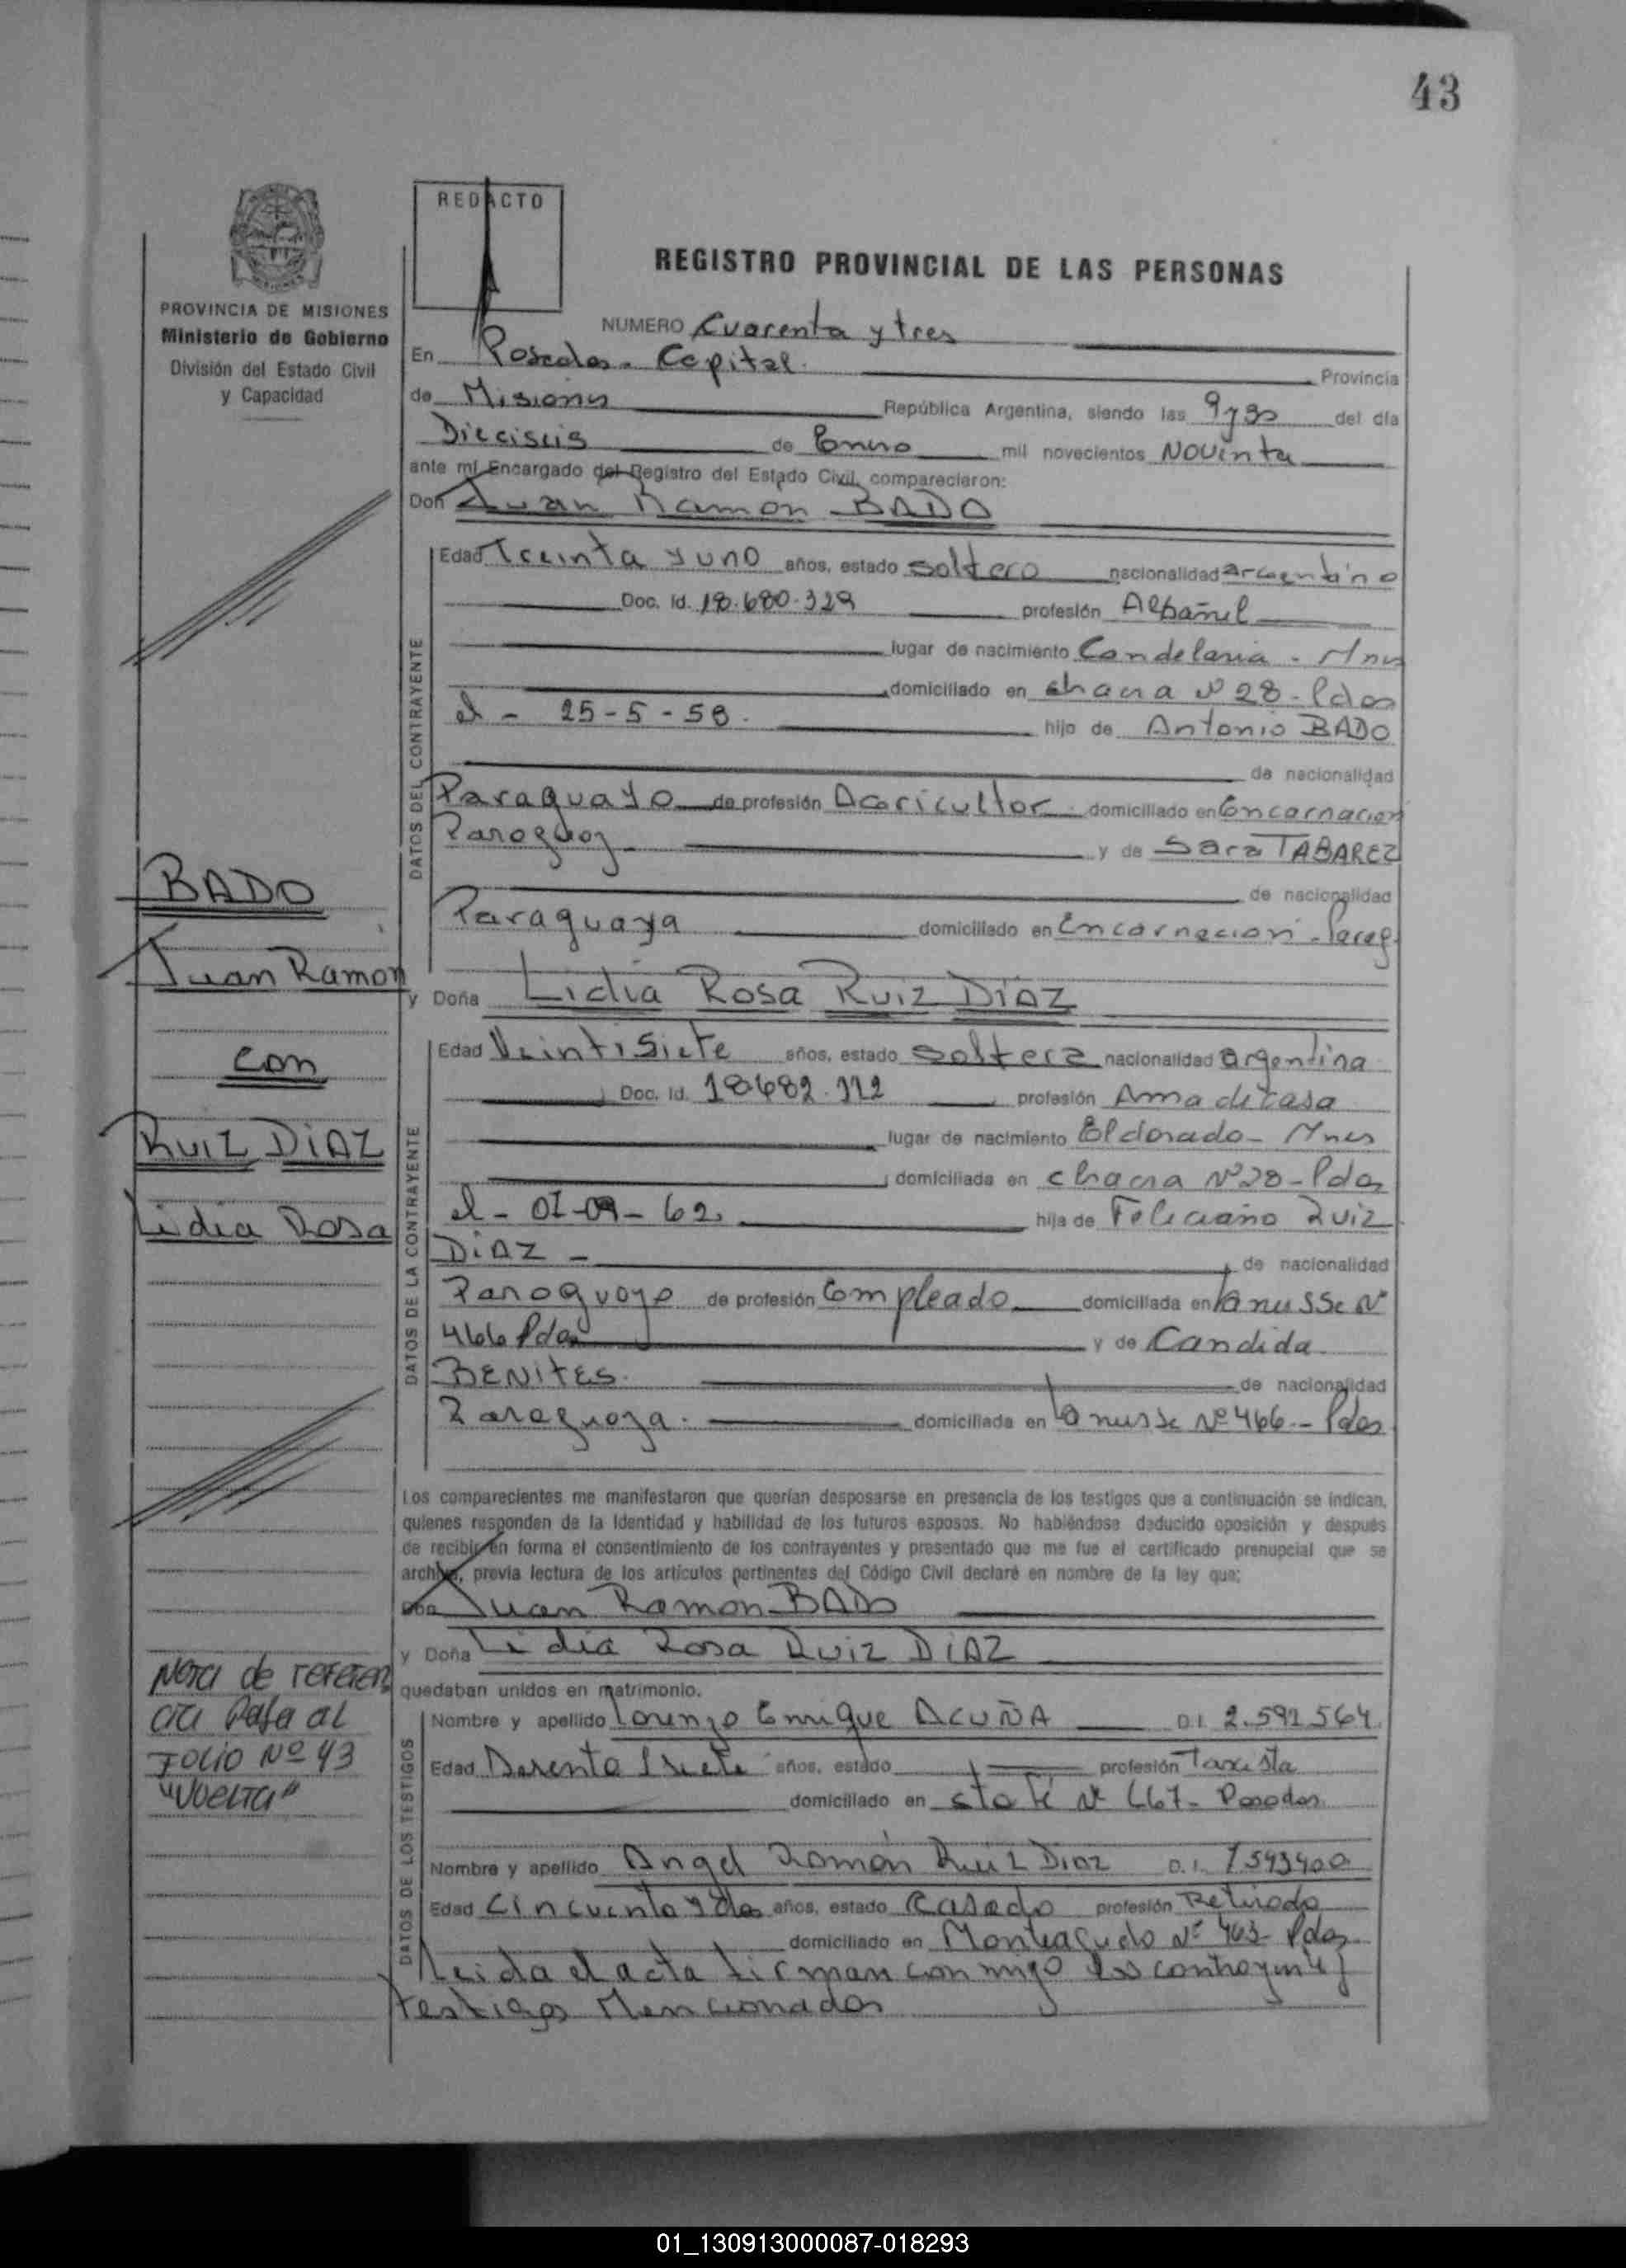 43
REDACTO
REGISTRO PROVINCIAL DE LAS PERSONAS
PROVINCIA DE MISIONES
Ministerio de Gobierno
División del Estado Civil
y Capacidad
NUMERO Cuarenta y tres
En Posadas. Capital. Provincia
de Misiones República Argentina, siendo las 9 y 30 del día
Dieciseis de Enero mil novecientos Noventa
ante mí Encargado del Registro del Estado Civil, comparecieron:
Don Juan Ramon BADO
DATOS DEL CONTRAYENTE
Edad Treinta y uno años, estado soltero nacionalidad argentino
Doc. Id. 18.680.329 profesión Albañil
lugar de nacimiento Candelaria - Mnes
domiciliado en chacra Nº 28 - Pdas
el - 25-5-58. hijo de Antonio BADO
de nacionalidad
Paraguayo de profesión Agricultor domiciliado en Encarnacion
Paraguay y de Sara TABAREZ
de nacionalidad
Paraguaya domiciliado en Encarnacion - Parag.
y Doña Lidia Rosa Ruiz DIAZ
DATOS DE LA CONTRAYENTE
Edad Veintisiete años, estado soltera nacionalidad argentina
Doc. Id. 18.682.112 profesión Ama de casa
lugar de nacimiento Eldorado - Mnes
domiciliada en chacra Nº 28 - Pdas
el - 01-09-62. hija de Feliciano Ruiz
DIAZ - de nacionalidad
Paraguayo de profesión Empleado domiciliada en Lanusse Nº
466 Pdas y de Candida
BENITES. de nacionalidad
Paraguaya. domiciliada en Lanusse Nº 466 - Pdas
Los comparecientes me manifestaron que querían desposarse en presencia de los testigos que a continuación se indican,
quienes responden de la Identidad y habilidad de los futuros esposos. No habiéndose deducido oposición y después
de recibir en forma el consentimiento de los contrayentes y presentado que me fue el certificado prenupcial que se
archiva, previa lectura de los artículos pertinentes del Código Civil declaré en nombre de la ley que:
Don Juan Ramon BADO
y Doña Lidia Rosa Ruiz DIAZ
quedaban unidos en matrimonio.
DATOS DE LOS TESTIGOS
Nombre y apellido Lorenzo Enrique ACUÑA D.I. 2.592.564
Edad años, estado profesión Taxista
domiciliado en Sta Fé Nº 667 - Posadas
Nombre y apellido Angel Román Ruiz Diaz D.I. 7593400
Edad Cincuenta y dos años, estado Casado profesión Retirado
domiciliado en Monteagudo Nº 463 Pdas
Leida el acta firman conmigo los contrayentes y
testigos Mencionados
BADO
Juan Ramon
con
RUIZ DIAZ
Lidia Rosa
Nota de referen
cia Pasa al
Folio Nº 43
"Vuelta"
01_130913000087-018293